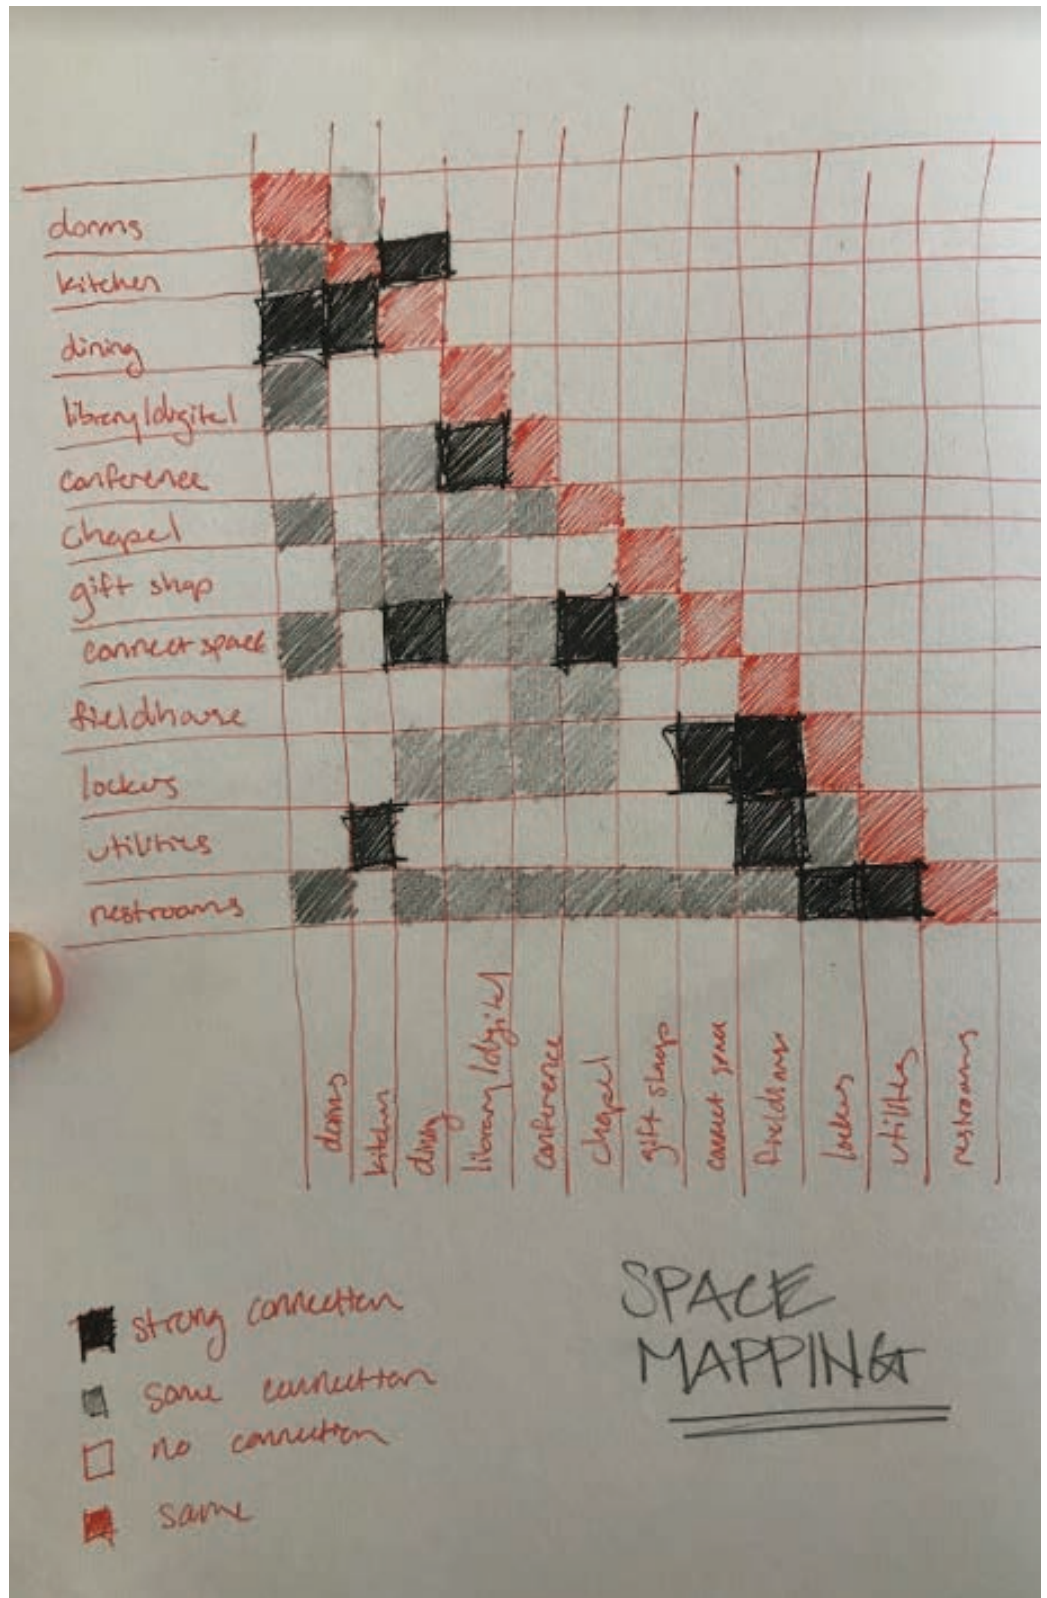 dorms
kitchen
dining
library/digital
conference
chapel
gift shop
connect space
fieldhouse
lockers
utilities
restrooms
dorms
kitchen
dining
library/digital
conference
chapel
gift shop
connect space
fieldhouse
lockers
utilities
restrooms
strong connection
some connection
no connection
same
SPACE
MAPPING